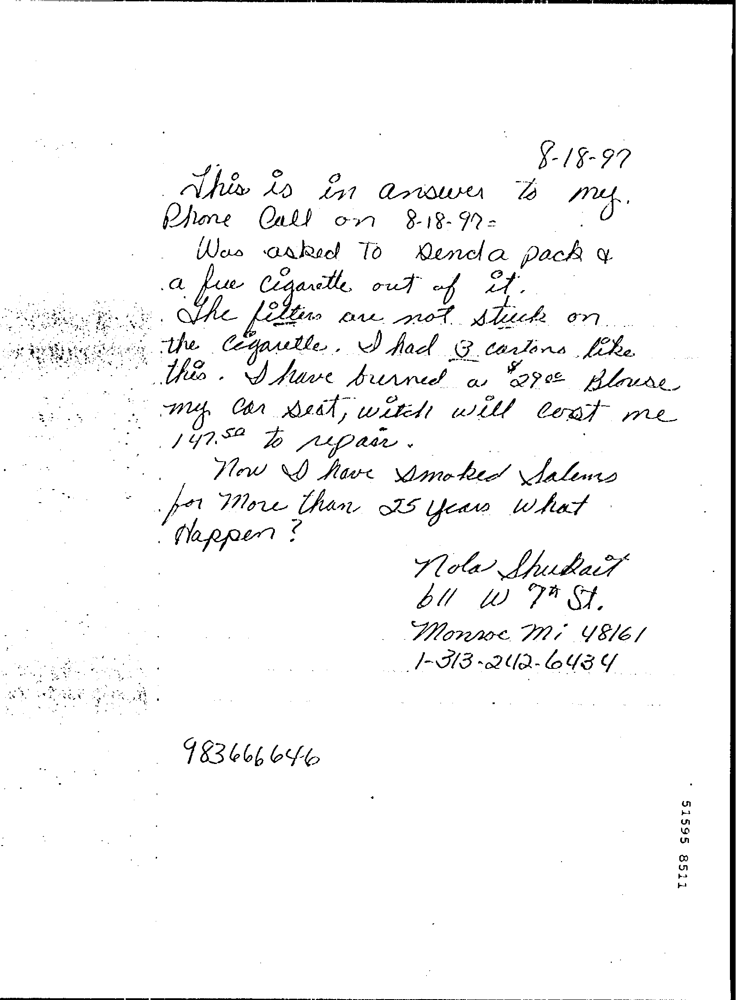 8-18-97
This is in answer to my.
Phone Call on 8-18-97=
Was asked To send a pack &
a fue cigarette out of it.
The filters are not stuck on
the cigarette. I had 3 cartons like
this. I have burned a $29.00 Blouse
my car seat, witch will cost me
147.50 to repair.
Now I have smoked Salems
for More than 25 years What
Happen?
Nola
611 W 7th St.
Monroe Mi 48161
1-313-242-6434
983666646
51595 8511